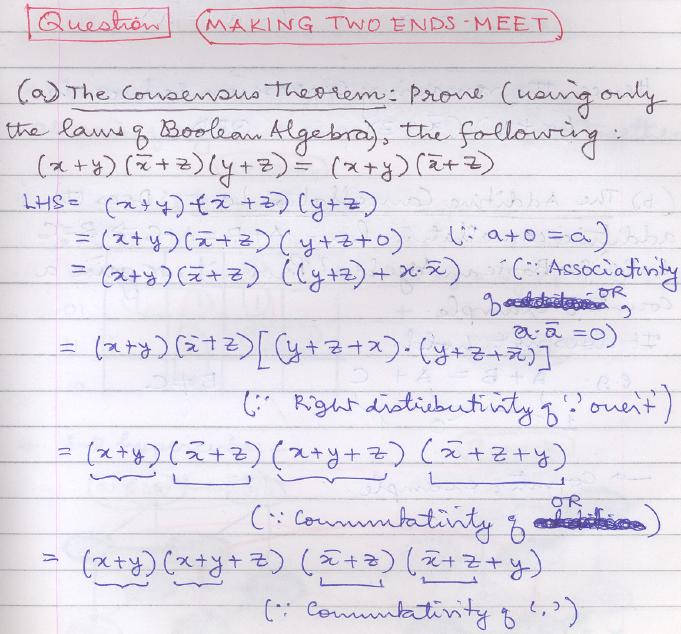 Question MAKING TWO ENDS-MEET
(a) The Consensus Theorem: Prove (using only
the laws of Boolean Algebra), the following:
(x+y)(x̄+z)(y+z) = (x+y)(x̄+z)
LHS = (x+y)(x̄+z)(y+z)
= (x+y)(x̄+z)(y+z+0) (∵ a+0=a)
= (x+y)(x̄+z)((y+z)+x·x̄) (∵ Associativity
of OR,
a·ā=0)
= (x+y)(x̄+z)[(y+z+x)·(y+z+x̄)]
(∵ Right distributivity of '.' over '+')
= (x+y)(x̄+z)(x+y+z)(x̄+z+y)
(∵ Commutativity of OR)
= (x+y)(x+y+z)(x̄+z)(x̄+z+y)
(∵ Commutativity of '.')